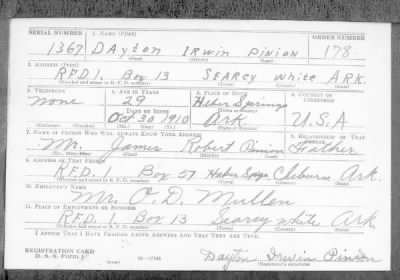 SERIAL NUMBER 1. NAME (Print) ORDER NUMBER
1367 DAYTON IRWIN PINION 178
(First) (Middle) (Last)
2. ADDRESS (Print)
R.F.D. 1. Box 13 SEARCY White ARK.
(Number and street or R. F. D. number) (Town) (County) (State)
3. TELEPHONE 4. AGE IN YEARS 5. PLACE OF BIRTH 6. COUNTRY OF CITIZENSHIP
None 29 Heber Springs
DATE OF BIRTH (Town or county)
Oct 30 1910 Ark. U.S.A
(Exchange) (No.) (Mo.) (Day) (Yr.) (State or country)
7. NAME OF PERSON WHO WILL ALWAYS KNOW YOUR ADDRESS 8. RELATIONSHIP OF THAT PERSON
Mr. James Robert Pinion Father
(Mr., Mrs., Miss) (First) (Middle) (Last)
9. ADDRESS OF THAT PERSON
R.F.D. Box 57 Heber Spgs Cleburn Ark.
(Number and street or R. F. D. number) (Town) (County) (State)
10. EMPLOYER'S NAME
Mr. O. D. Mullen
11. PLACE OF EMPLOYMENT OR BUSINESS
R.F.D. 1. Box 13 Searcy White Ark
(Number and street or R. F. D. number) (Town) (County) (State)
I AFFIRM THAT I HAVE VERIFIED ABOVE ANSWERS AND THAT THEY ARE TRUE.
REGISTRATION CARD
D. S. S. Form 1
(over) 16—17105
Dayton Irwin Pinion
(Registrant's signature)